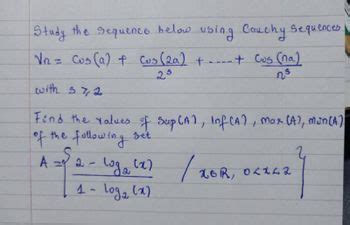 Study the sequence below using Cauchy Sequences
Vn = Cos(a) + Cos(2a)/2^s + ---- + Cos(na)/n^s
with s ⩾ 2
Find the values of Sup(A), Inf(A), max(A), min(A)
of the following set
A = { 2 - log₂(x) / 1 - log₂(x) / x∈R, 0<x<2 }